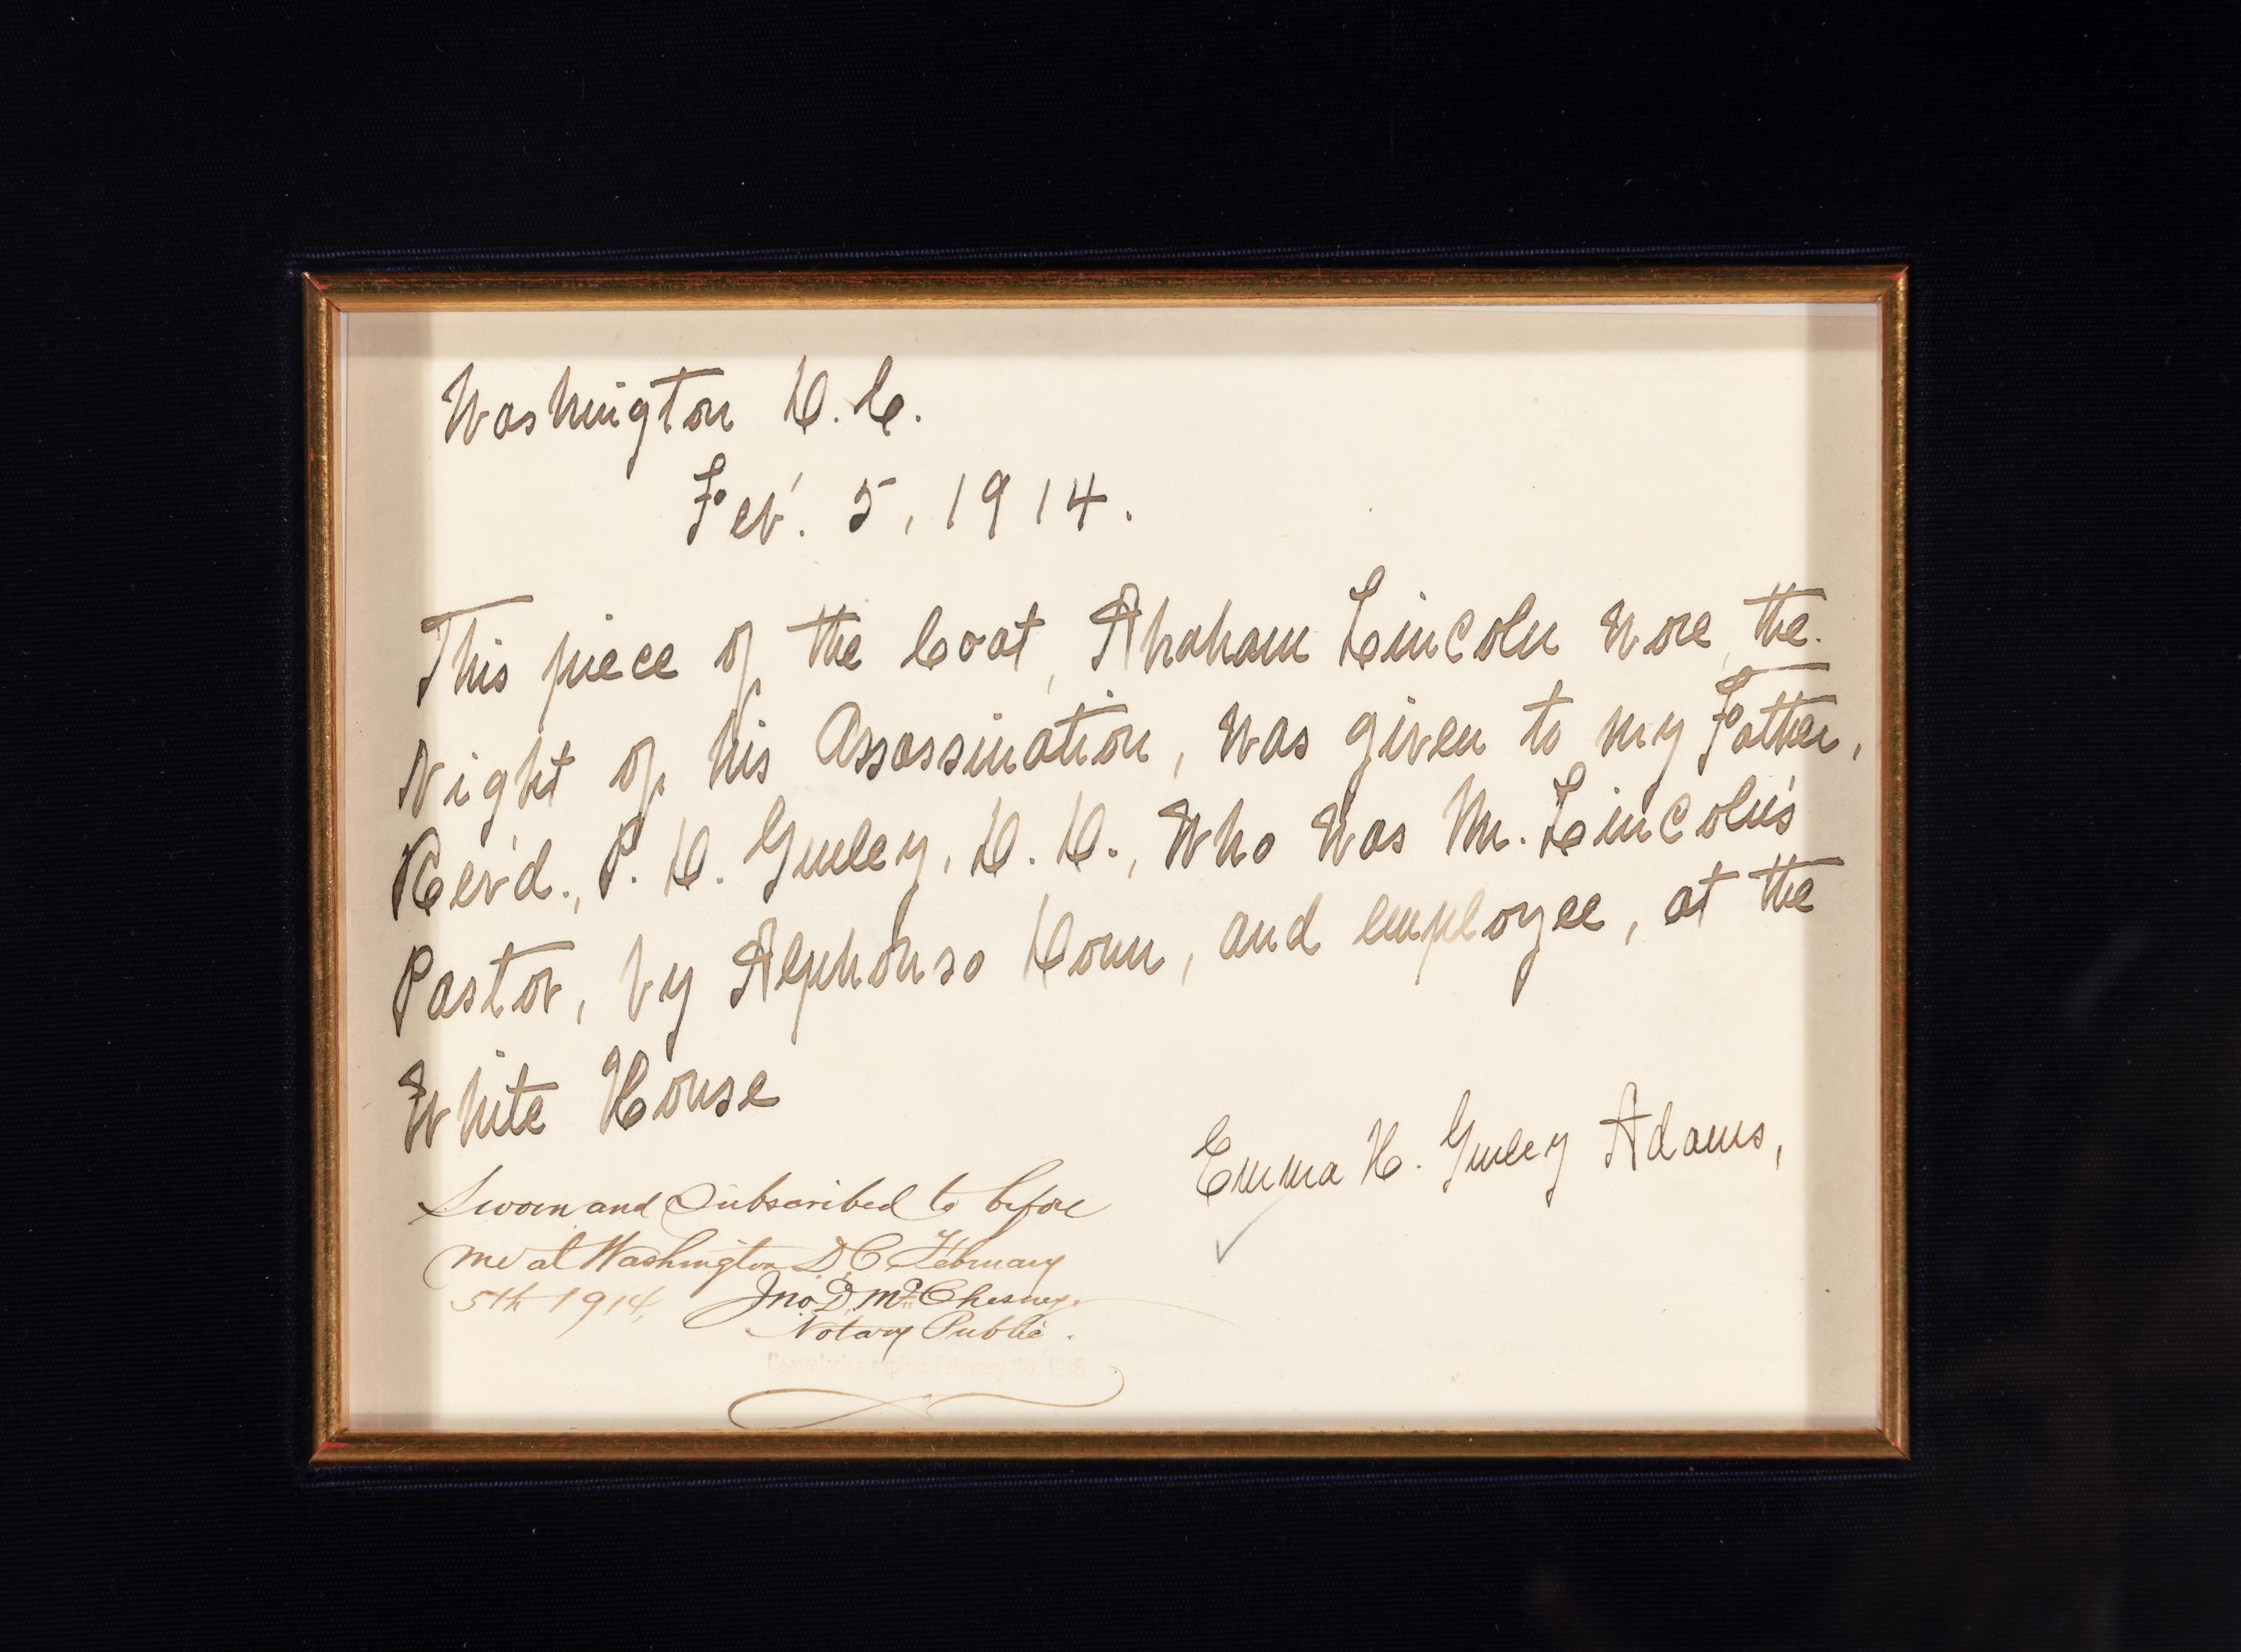 Washington D.C.
Feb'. 5, 1914.
This piece of the Coat, Abraham Lincoln wore, the
Night of his Assassination, was given to my Father,
Rev'd., P. D. Gurley, D. D., who was Mr. Lincoln's
Pastor, by Alphonso Donn, and employee, at the
White House
Emma H. Gurley Adams,
Sworn and Subscribed to before
me at Washington D.C. February
5th 1914, Jno. D. McChesney.
Notary Public.
Commission expires February 20, 1915